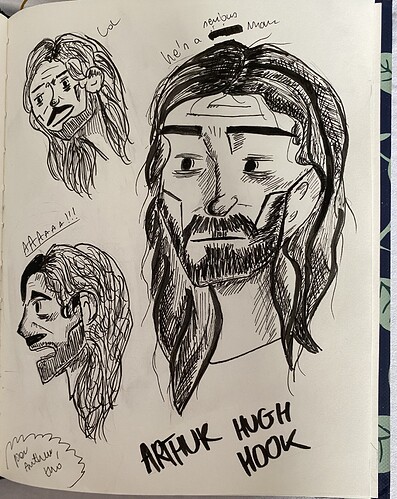 lol
he's a serious man
AAAAAAA!!!
ARTHUR HUGH
HOOK
poor
Arthur,
tho